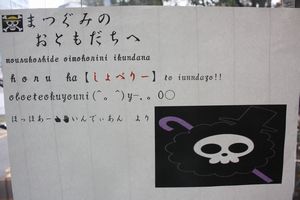 まつぐみの
おともだちへ
mousukoshide oimohonini ikundana
horu ka【しょべりー】to iunndazo!!
oboeteokuyouni(^。^)y-.。o○
はっはあー いんでぃあん より